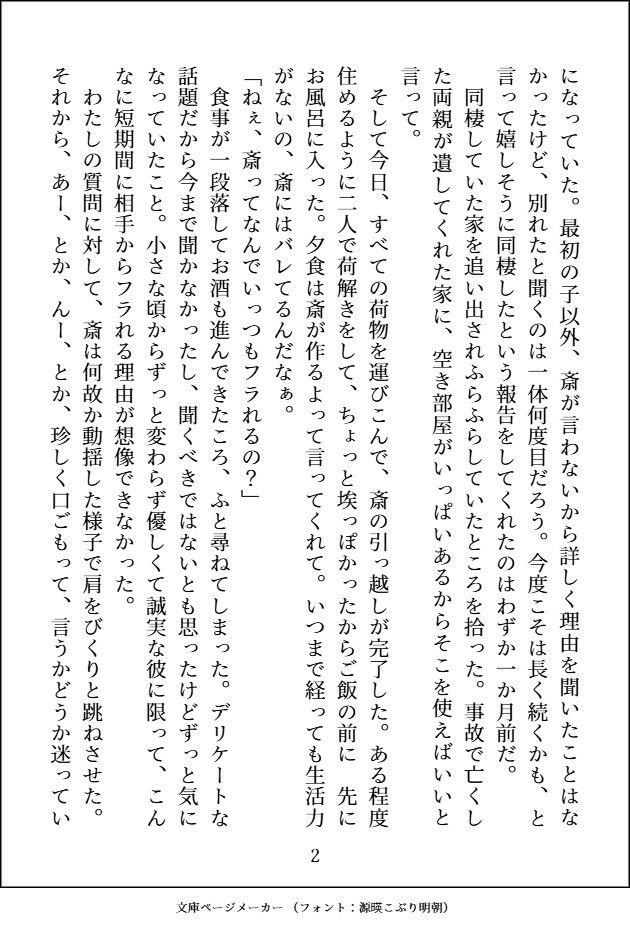 になっていた。最初の子以外、斎が言わないから詳しく理由を聞いたことはな
かったけど、別れたと聞くのは一体何度目だろう。今度こそは長く続くかも、と
言って嬉しそうに同棲したという報告をしてくれたのはわずか一か月前だ。
　同棲していた家を追い出されふらふらしていたところを拾った。事故で亡くし
た両親が遺してくれた家に、空き部屋がいっぱいあるからそこを使えばいいと
言って。
　そして今日、すべての荷物を運びこんで、斎の引っ越しが完了した。ある程度
住めるように二人で荷解きをして、ちょっと埃っぽかったからご飯の前に　先に
お風呂に入った。夕食は斎が作るよって言ってくれて。いつまで経っても生活力
がないの、斎にはバレてるんだなぁ。
「ねぇ、斎ってなんでいっつもフラれるの？」
　食事が一段落してお酒も進んできたころ、ふと尋ねてしまった。デリケートな
話題だから今まで聞かなかったし、聞くべきではないとも思ったけどずっと気に
なっていたこと。小さな頃からずっと変わらず優しくて誠実な彼に限って、こん
なに短期間に相手からフラれる理由が想像できなかった。
　わたしの質問に対して、斎は何故か動揺した様子で肩をびくりと跳ねさせた。
それから、あー、とか、んー、とか、珍しく口ごもって、言うかどうか迷ってい
2
文庫ページメーカー （フォント：源暎こぶり明朝）